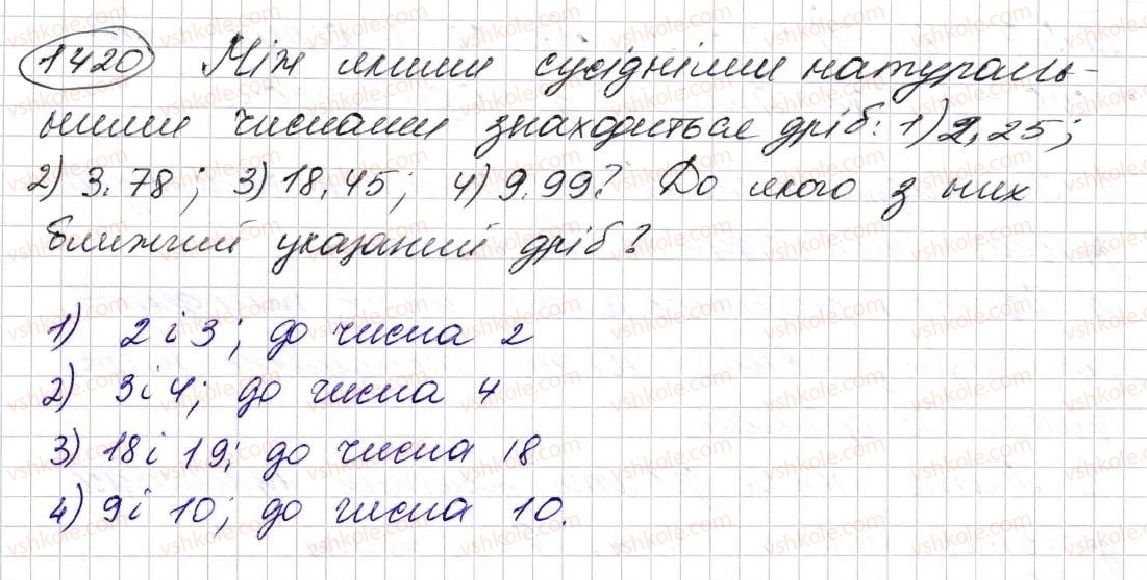 1420 Між якими сусідніми натураль-
ними числами знаходиться дріб: 1) 2,25;
2) 3,78; 3) 18,45; 4) 9,99? До якого з них
ближчий указаний дріб?
1) 2 і 3; до числа 2
2) 3 і 4; до числа 4
3) 18 і 19; до числа 18
4) 9 і 10; до числа 10.
vshkole.com